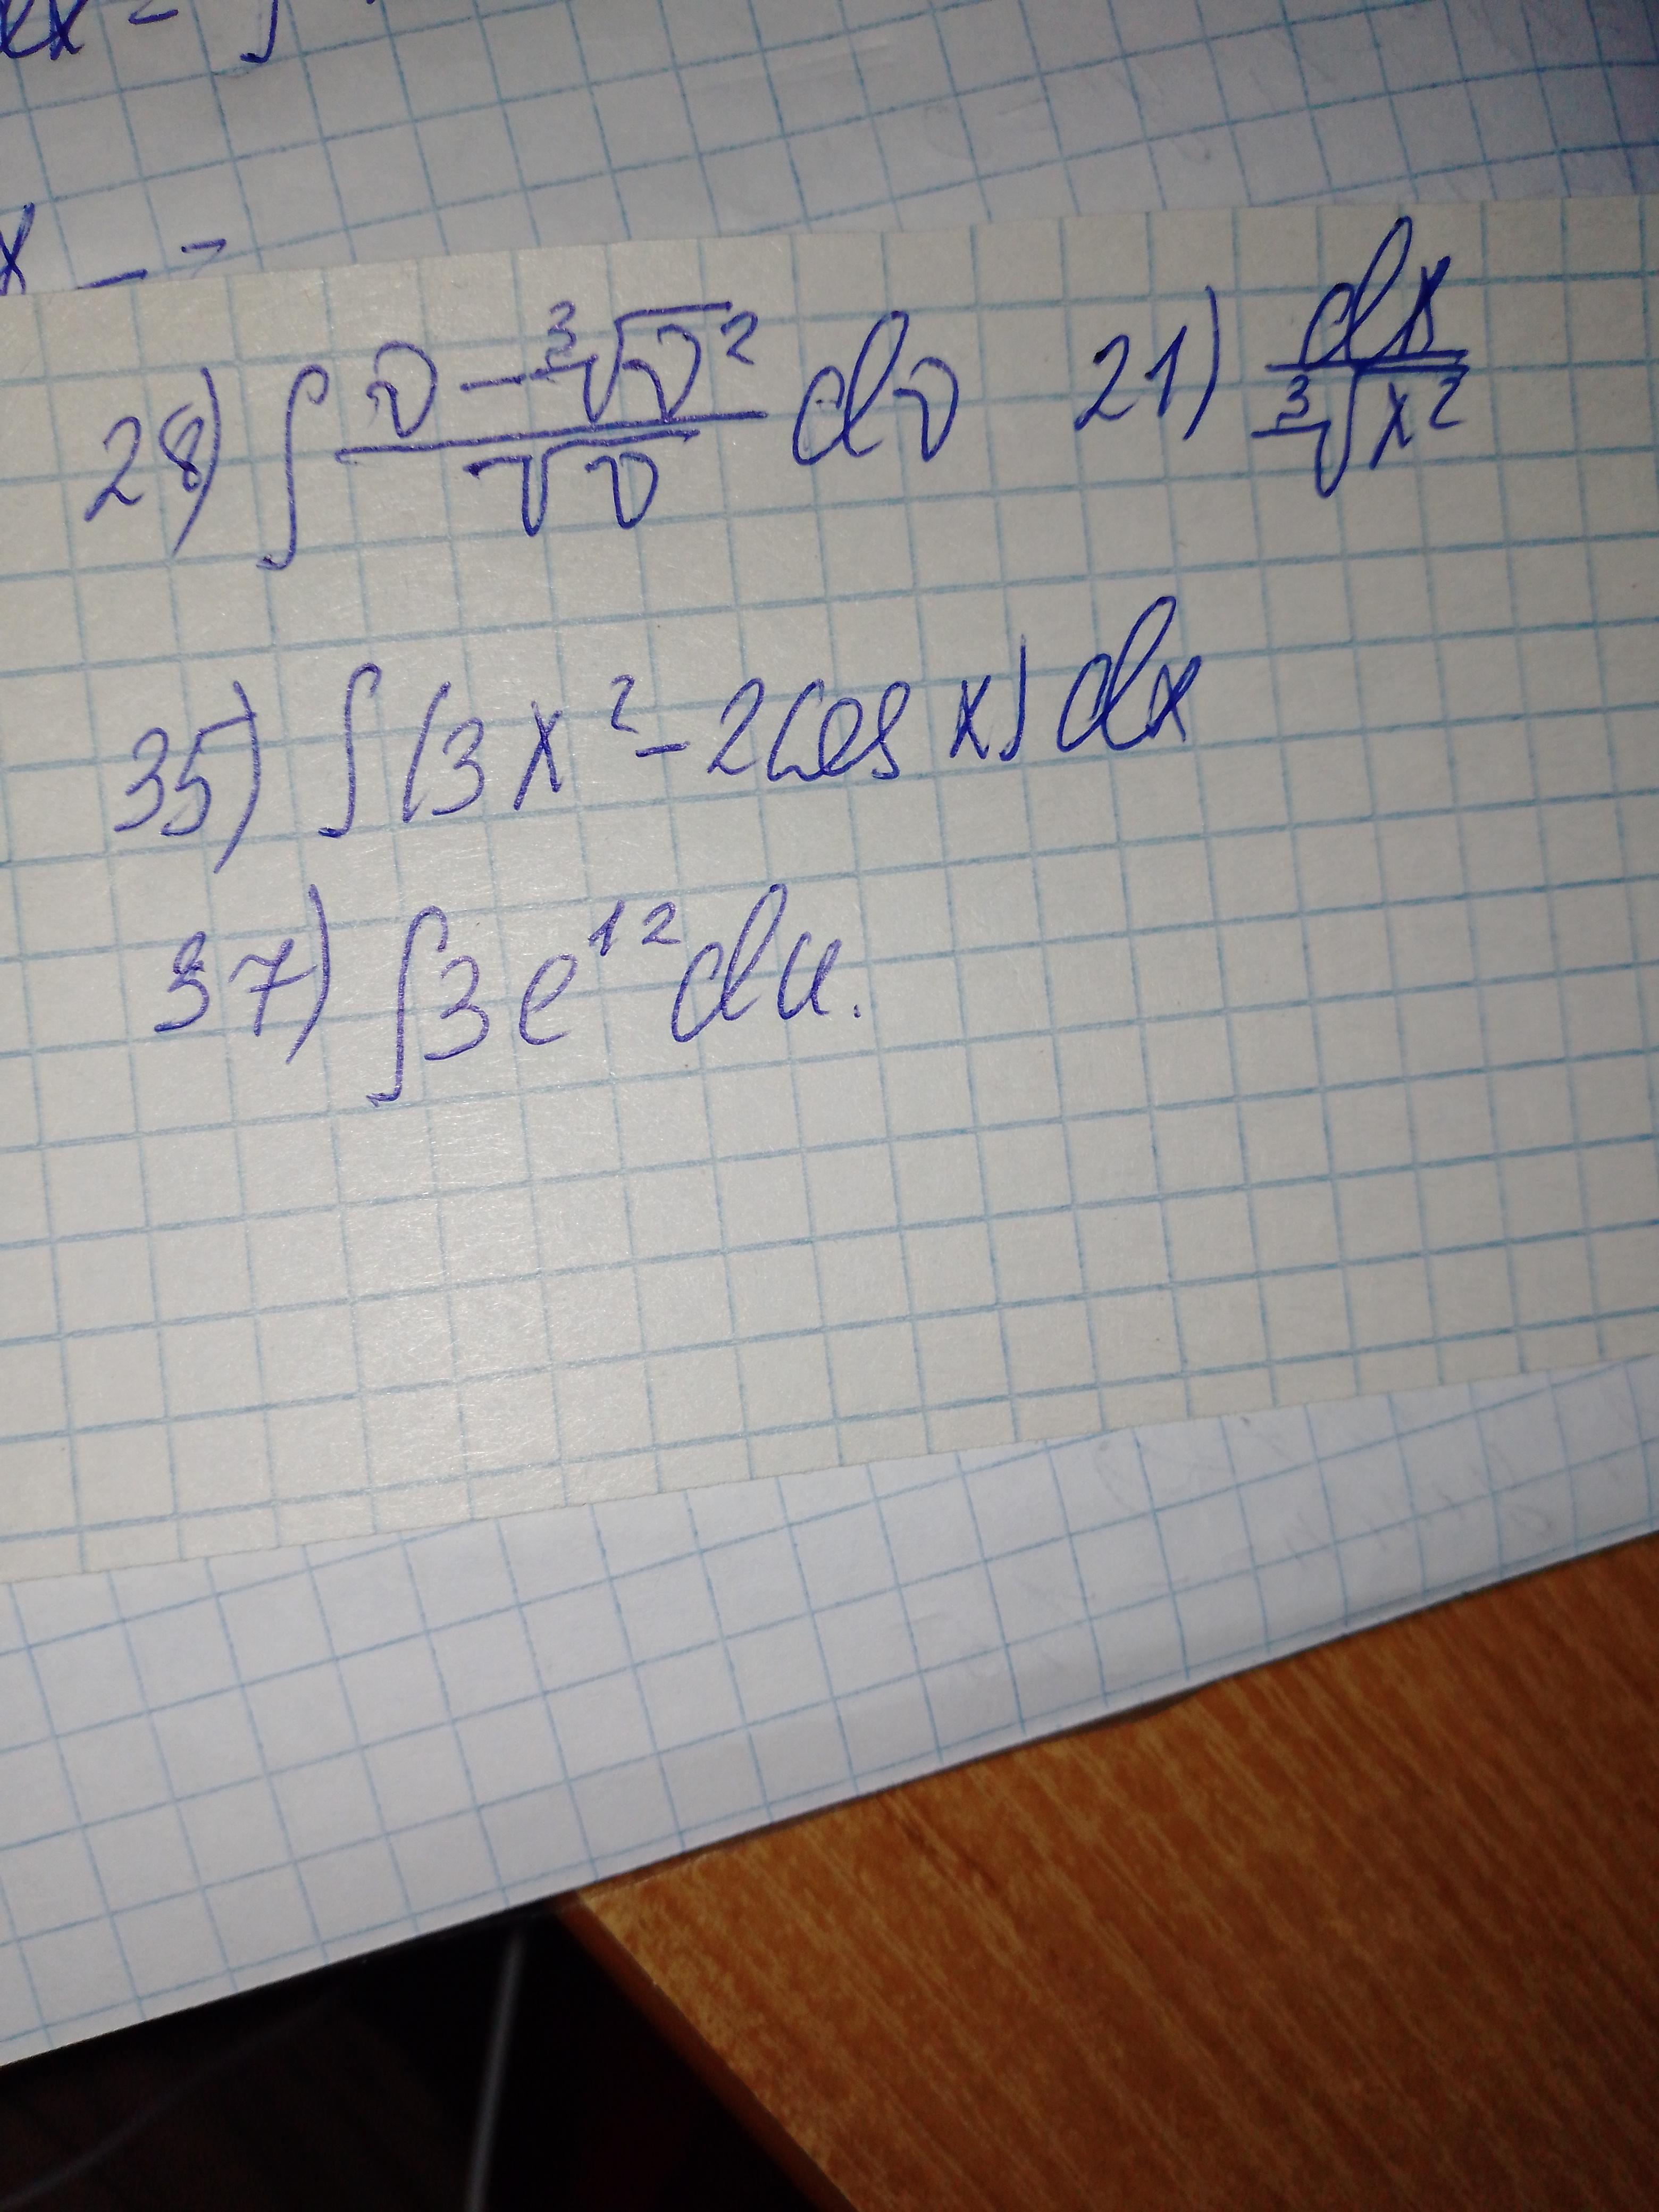 x - =
28) ∫ (v - ∛v²)/√v dv 21) dx/∛x²
35) ∫ (3x² - 2cos x) dx
37) ∫ 3e¹² du.